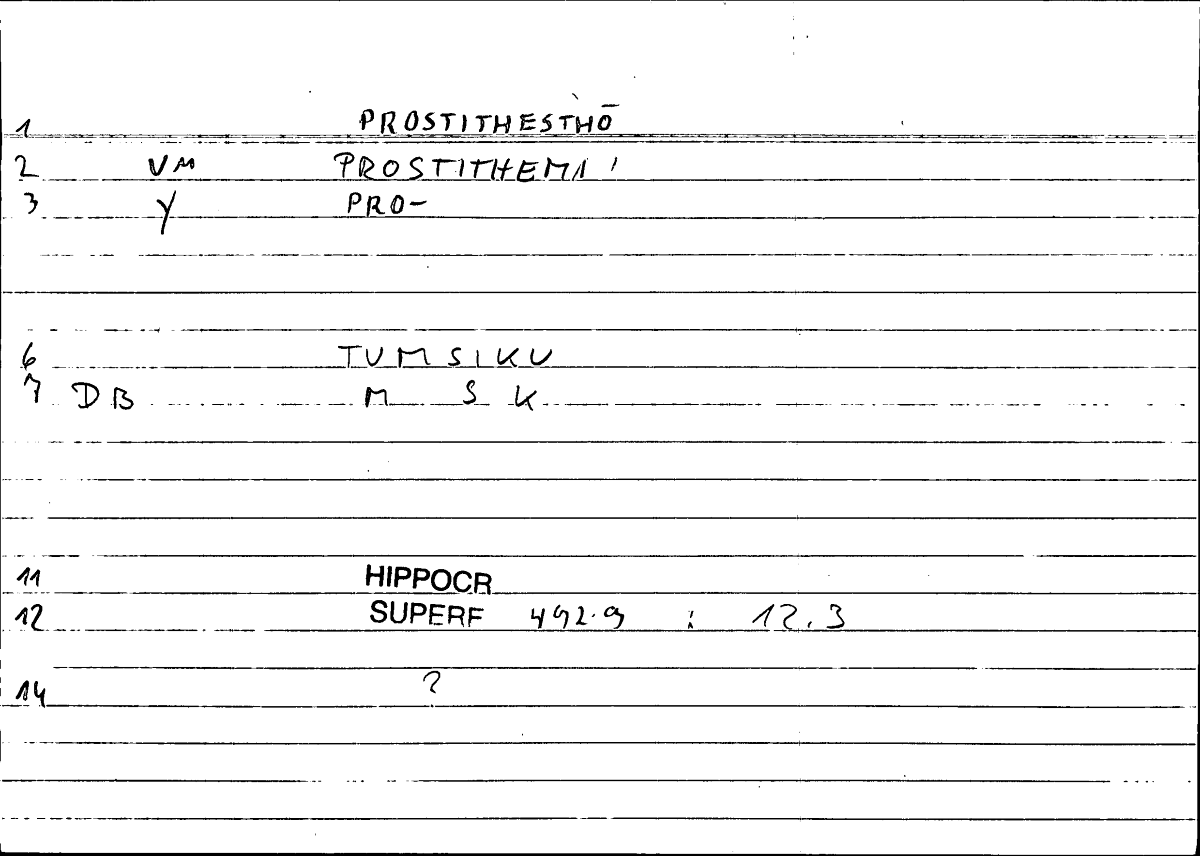 1 PROSTITHESTHŌ
2 VM PROSTITHEMI
3 Y PRO-
6 TUMSIKU
7 DB M S K
11 HIPPOCR
12 SUPERF 492.9 : 12.3
14 ?